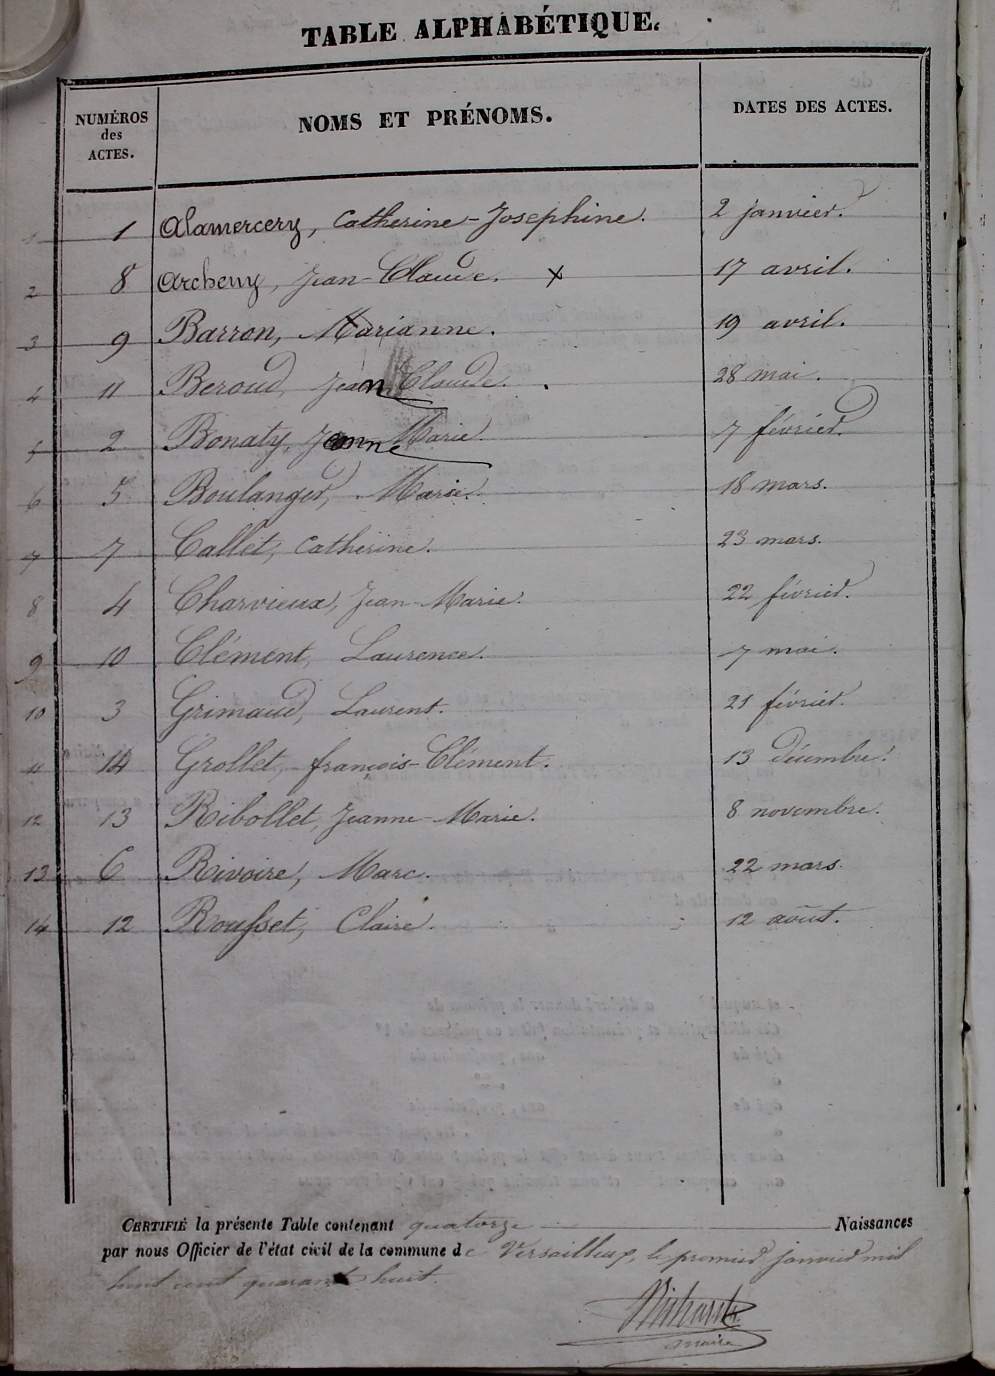 TABLE ALPHABÉTIQUE.
NUMÉROS des ACTES. NOMS ET PRÉNOMS. DATES DES ACTES.
1 1 Alamercery, Catherine-Josephine. 2 janvier.
2 8 Archeny, Jean-Claude. x 17 avril.
3 9 Barron, Marianne. 19 avril.
4 11 Beroud, Jean Claude. 28 mai.
5 2 Bonaty, Jeanne Marie. 7 février.
6 5 Boulanger, Marie. 18 mars.
7 7 Callet, Catherine. 23 mars.
8 4 Charvieux, Jean-Marie. 22 février.
9 10 Clément, Laurence. 7 mai.
10 3 Grimaud, Laurent. 21 février.
11 14 Grollet, françois-Clément. 13 Décembre.
12 13 Ribollet, Jeanne-Marie. 8 novembre.
13 6 Rivoire, Marc. 22 mars.
14 12 Rousset, Claire. 12 août.
CERTIFIÉ la présente Table contenant quatorze Naissances
par nous Officier de l'état civil de la commune de Versailleux, le premier janvier mil
huit cent quarante huit.
maire